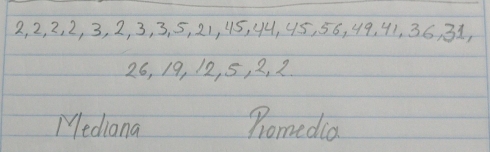 2,2,2,2,3,2,3,3,5,21,45,44,45,56,49,41,36,31,
26,19,12,5,2,2.
Mediana Promedio